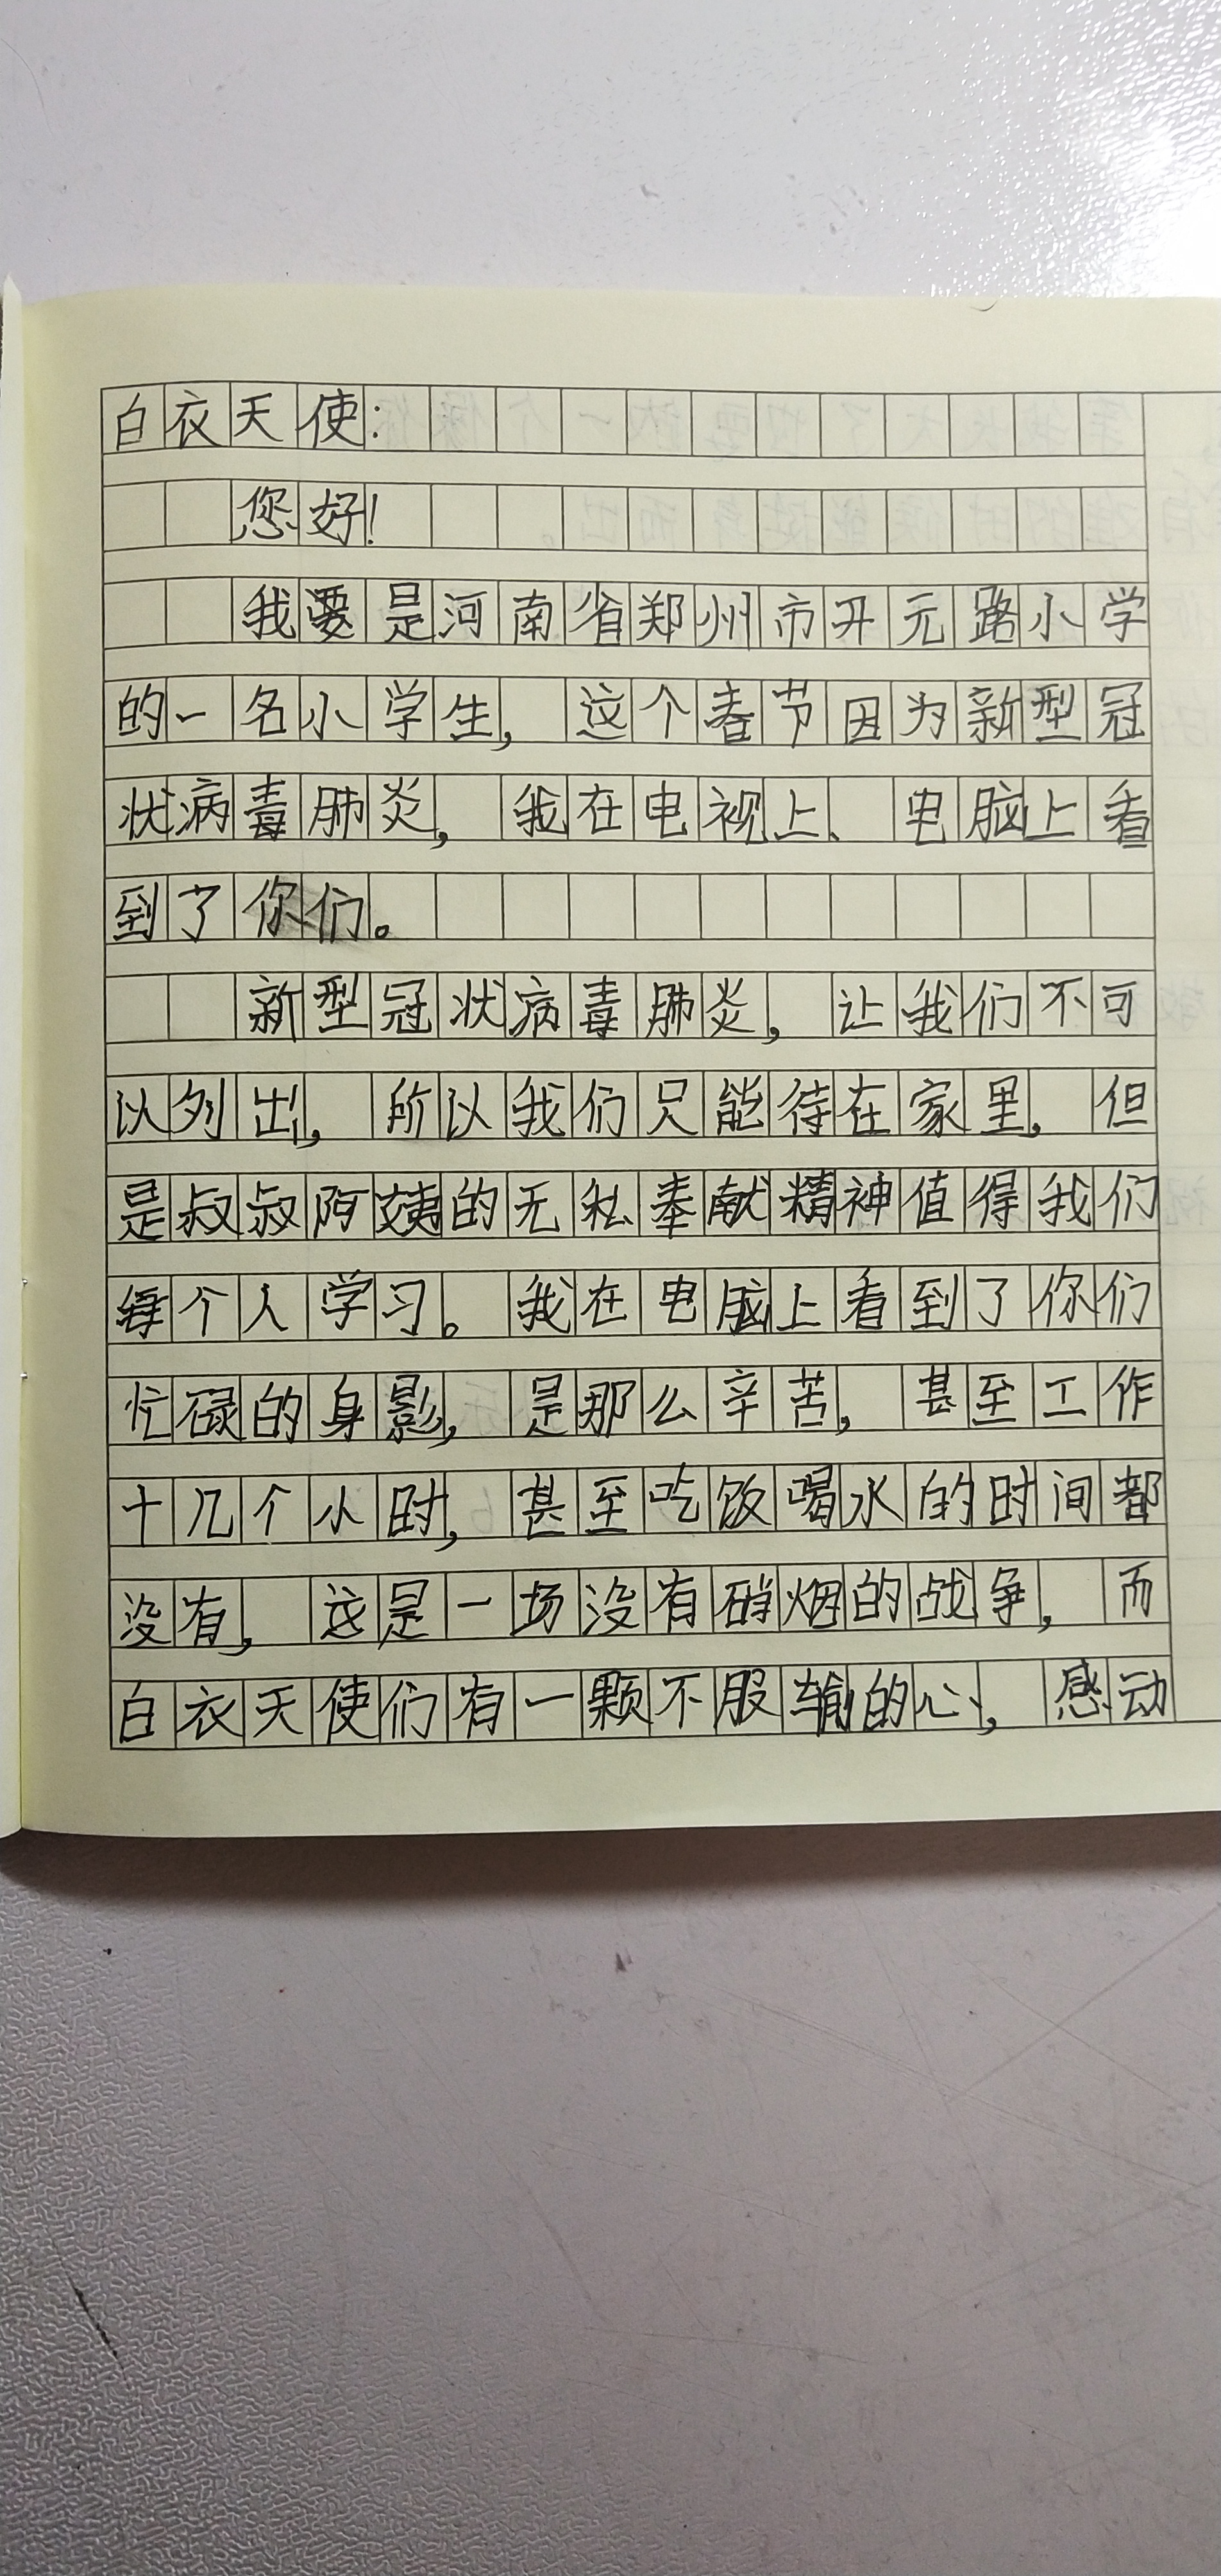 白衣天使：
您好！
我要是河南省郑州市开元路小学
的一名小学生，这个春节因为新型冠
状病毒肺炎，我在电视上、电脑上看
到了你们。
新型冠状病毒肺炎，让我们不可
以列出，所以我们只能待在家里，但
是叔叔阿姨的无私奉献精神值得我们
每个人学习。我在电脑上看到了你们
忙碌的身影，是那么辛苦，甚至工作
十几个小时，甚至吃饭喝水的时间都
没有，这是一场没有硝烟的战争，而
白衣天使们有一颗不服输的心，感动